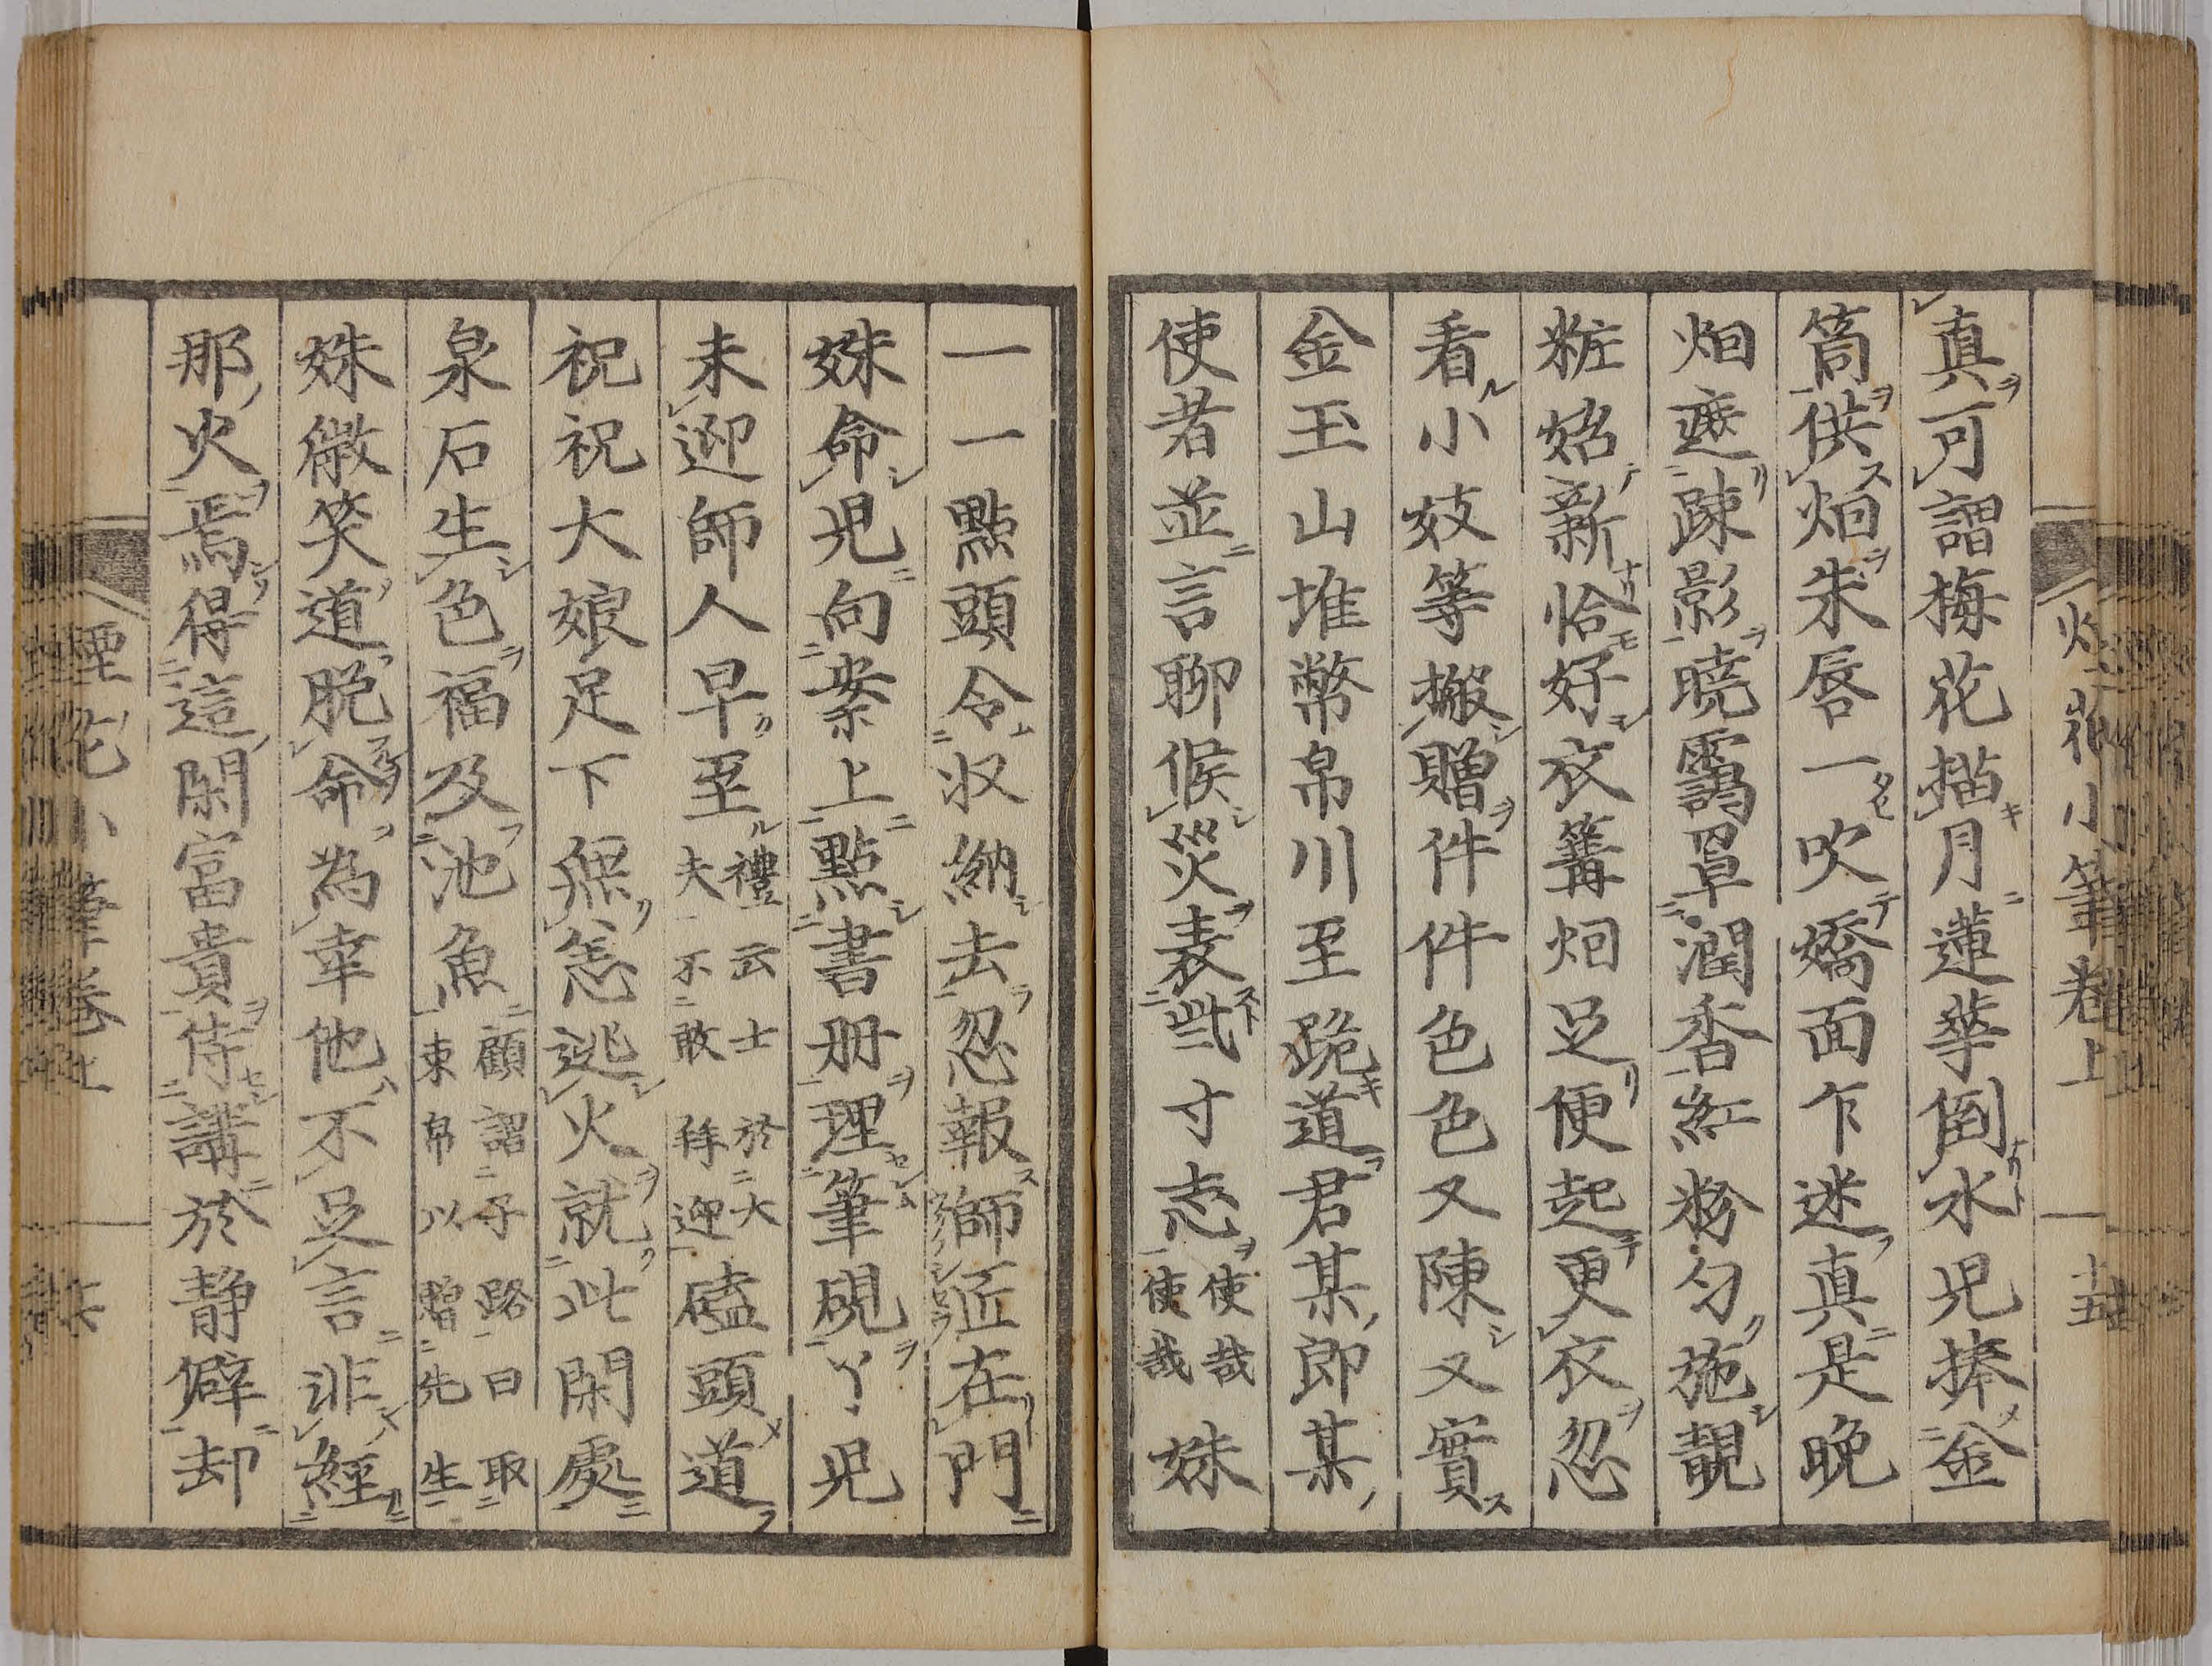 真可謂梅花描月蓮華倒水児捧金
筒供烟朱唇一吹嬌面乍迷真是晩
烟遮踈影暁靄罩潤香紅粉匀施靚
粧始新恰好衣篝烟足便起更衣忽
看小妓等搬贈件件色色又陳又實
金玉山堆幣帛川至跪道君某郎某
使者並言聊候災表些寸志使哉使哉姝
一一點頭令収納去忽報師匠在門
姝命児向案上點書册理筆硯丫児
耒迎師人早至禮云士於大夫不敢拜迎磕頭道
祝祝大娘足下無恙逃火就此閑處
泉石生色福及池魚顧詔子路曰取束帛以贈先生
姝微笑道脱命為幸他不足言非經
那火焉得這閑富貴侍講於静僻却
烟花小筆卷上
十五
煙花小筆卷上